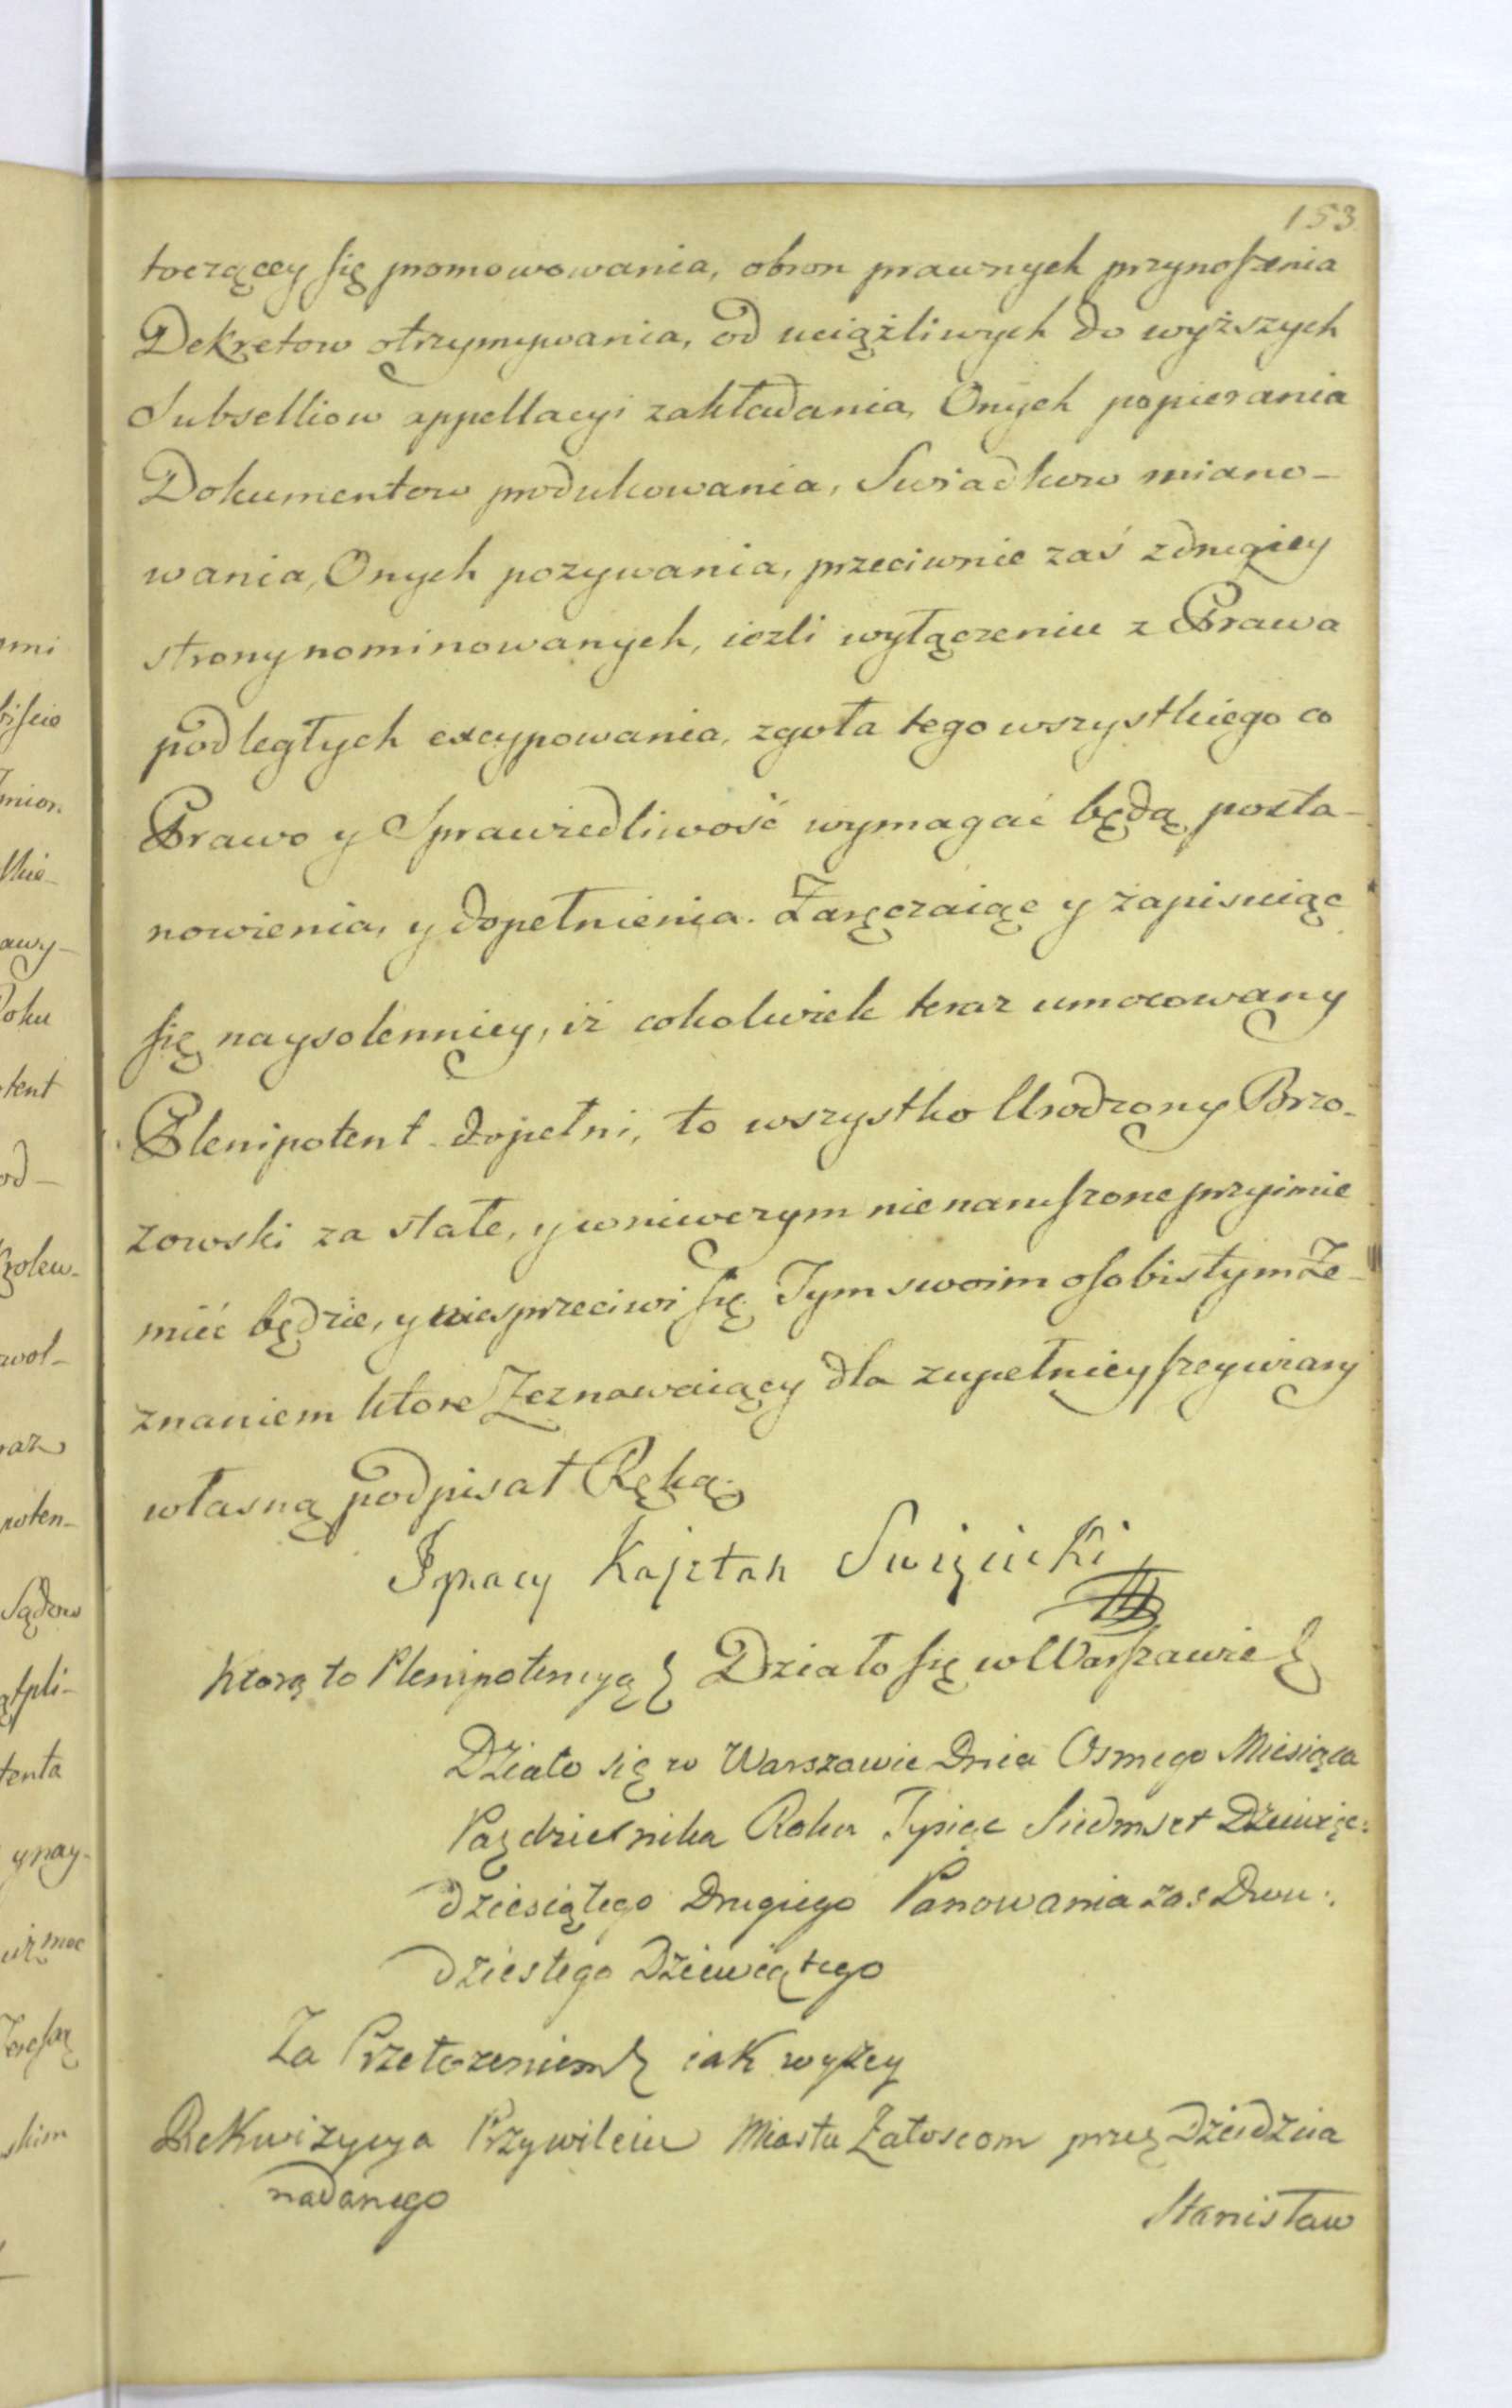 153
toczącey się promowowania, obron prawnych przynoszenia
Dekretow otrzymywania, od uciążliwych do wyższych
Subselliow appellacyi zakładania, Onych popierania
Dokumentow produkowania, Swiadkow miano-
wania, Onych pozywania, przeciwnie zaś zdrugiey
strony nominowanych, iezli wyłączeniu z Prawa
podległych excypowania, zgoła tego wszystkiego co
Prawo y Sprawiedliwość wymagać będą, posta-
nowienia, y dopełnienia. Zaręczaiąc y zapisuiąc
się naysolenniey, iż cokolwiek teraz umocowany
Plenipotent dopełni, to wszystko Urodzony Brzo-
zowski za stałe, y wniwczym nienaruszone przyimie
mieć będzie, y niesprzeciwi się Tym swoim osobistym Ze-
znaniem ktore Zeznawaiący dla zupełniey szey wiary
własną podpisał Ręką.
Ignacy Kajetan Swięcicki
Ktorą to Plenipotencyą Działo się w Warszawie
Działo się w Warszawie Dnia Osmego Miesiąca
Pazdziernika Roku Tysiąc Siedmset Dziewięć:
dziesiątego Drugiego Panowania zas Dwu:
dziestego Dziewiątego
Za Przełozeniem iak wyzey
Rekwizycya Przywileiu Miastu Załoscom przez Dziedzica
nadanego
Stanisław
mi
mion.
awy-
Roku
tent
od-
wol-
raz
poten-
Sądow
tenta
y nay-
moc
skim